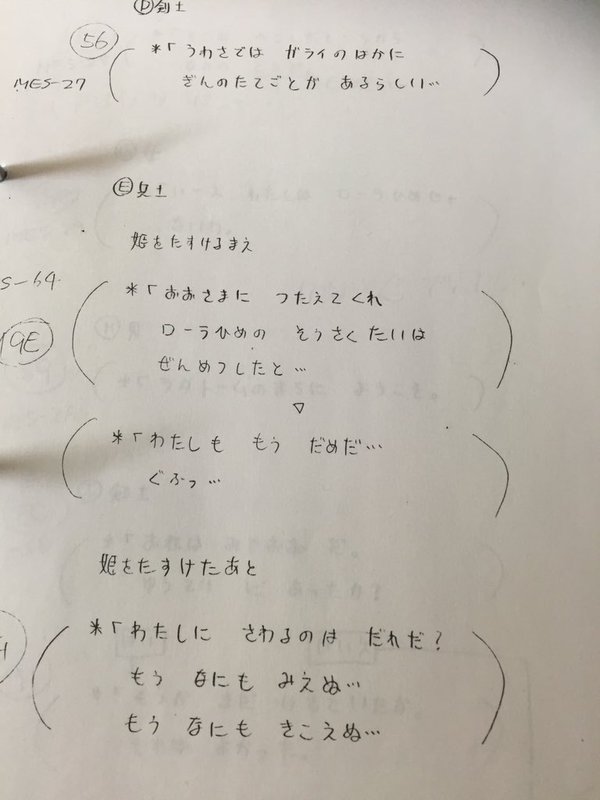 Ⓓ剣士
56
MES-27
*「うわさでは ガライのはかに
ぎんのたてごとが あるらしい…
Ⓔ兵士
姫をたすけるまえ
S-64
19E
*「おおさまに つたえてくれ
ローラひめの そうさくたいは
ぜんめつしたと…
▽
*「わたしも もう だめだ…
ぐふっ…
姫をたすけたあと
*「わたしに さわるのは だれだ?
もう なにも みえぬ…
もう なにも きこえぬ…